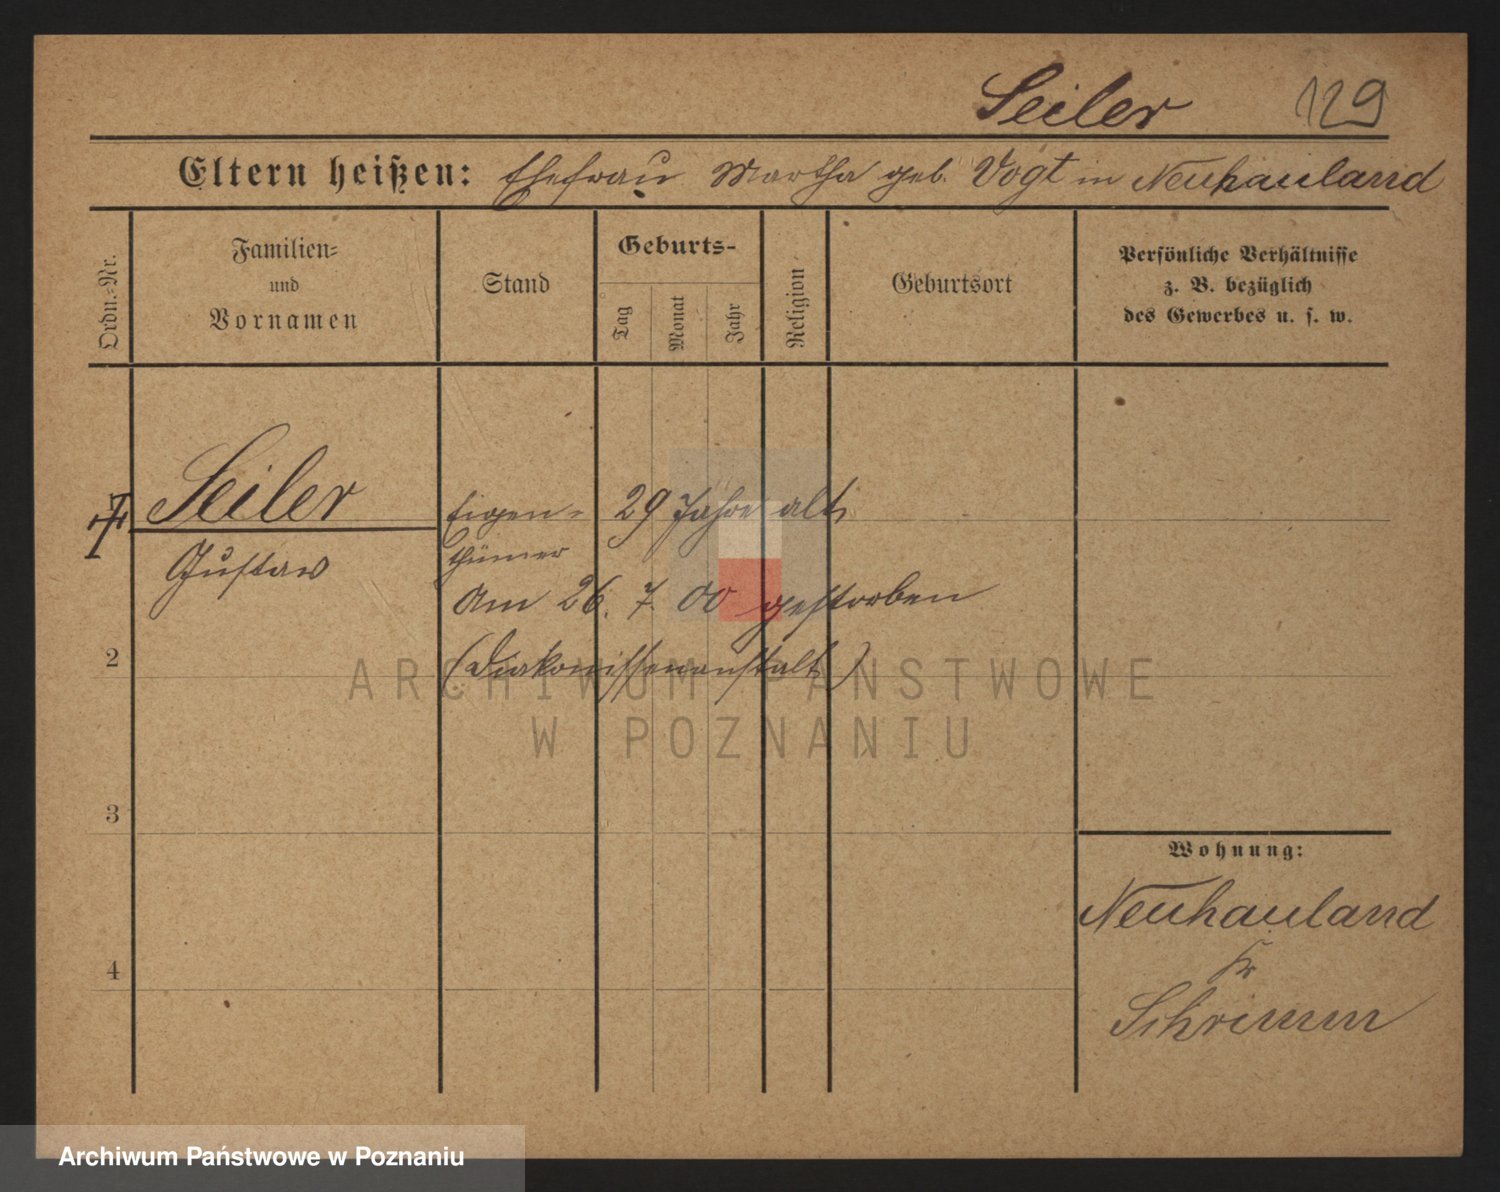 Seiler 129
Eltern heißen: Ehefrau Martha geb. Vogt in Neuhauland
Ordn.-Nr.
Familien-
und
Vornamen
Stand
Geburts-
Tag
Monat
Jahr
Religion
Geburtsort
Persönliche Verhältnisse
z. B. bezüglich
des Gewerbes u. s. w.
Seiler
Gustav
Eigen-
thümer
29 Jahre alt,
Am 26. 7. 00 gestorben
(Diakonissenanstalt)
2
3
4
Wohnung:
Neuhauland
Kr
Schrimm
ARCHIWUM PAŃSTWOWE
W POZNANIU
Archiwum Państwowe w Poznaniu